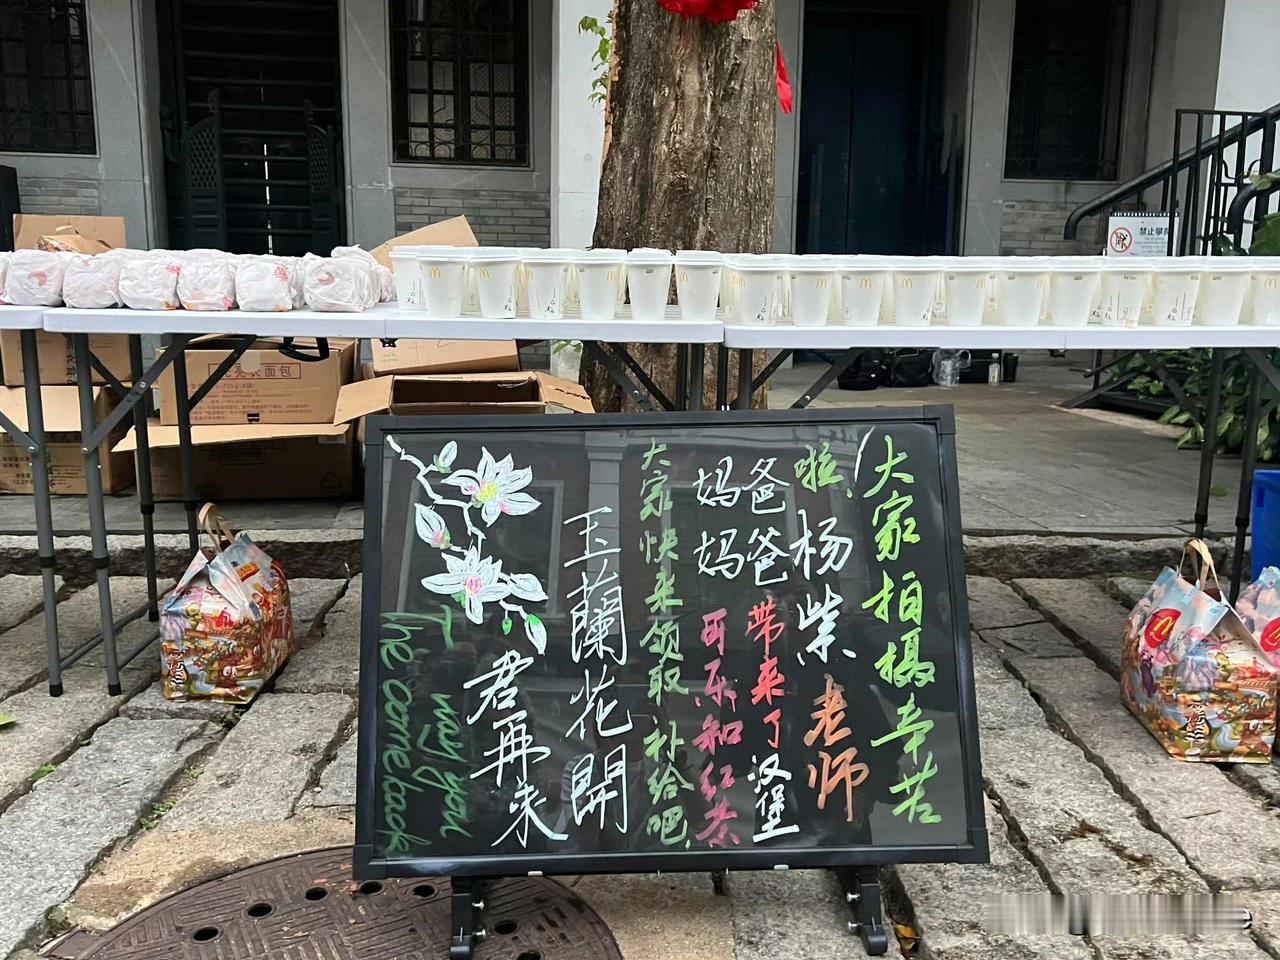 大家拍攝辛苦
啦，杨柴老师
爸爸带来了汉堡
妈妈可乐和红茶
大家快来领取补给吧.
玉蘭花開
君再来
I may you
The come back
禁止攀爬